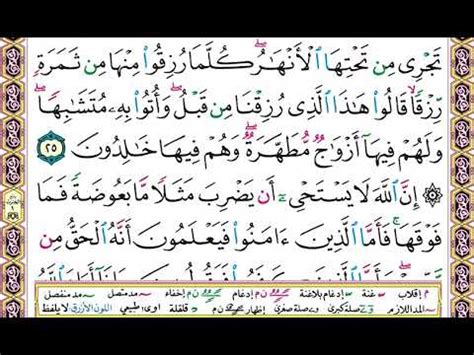 تَجْرِى مِن تَحْتِهَا ٱلْأَنْهَٰرُ ۖ كُلَّمَا رُزِقُوا۟ مِنْهَا مِن ثَمَرَةٍ
رِّزْقًا ۙ قَالُوا۟ هَٰذَا ٱلَّذِى رُزِقْنَا مِن قَبْلُ ۖ وَأُتُوا۟ بِهِۦ مُتَشَٰبِهًا ۖ
وَلَهُمْ فِيهَآ أَزْوَٰجٌ مُّطَهَّرَةٌ ۖ وَهُمْ فِيهَا خَٰلِدُونَ ٢٥
۞ إِنَّ ٱللَّهَ لَا يَسْتَحْىِۦٓ أَن يَضْرِبَ مَثَلًا مَّا بَعُوضَةً فَمَا
فَوْقَهَا ۚ فَأَمَّا ٱلَّذِينَ ءَامَنُوا۟ فَيَعْلَمُونَ أَنَّهُ ٱلْحَقُّ مِن
م إقلاب ~ غنة ~ إدغام بلاغنة ن م إدغام ن م إخفاء ~ مد متصل ~ مد منفصل
~ المد اللازم ~ صلة كبرى ~ صلة صغرى إظهار ن م ~ قلقلة اوى/ طبيعي اللون الأزرق لا يلفظ